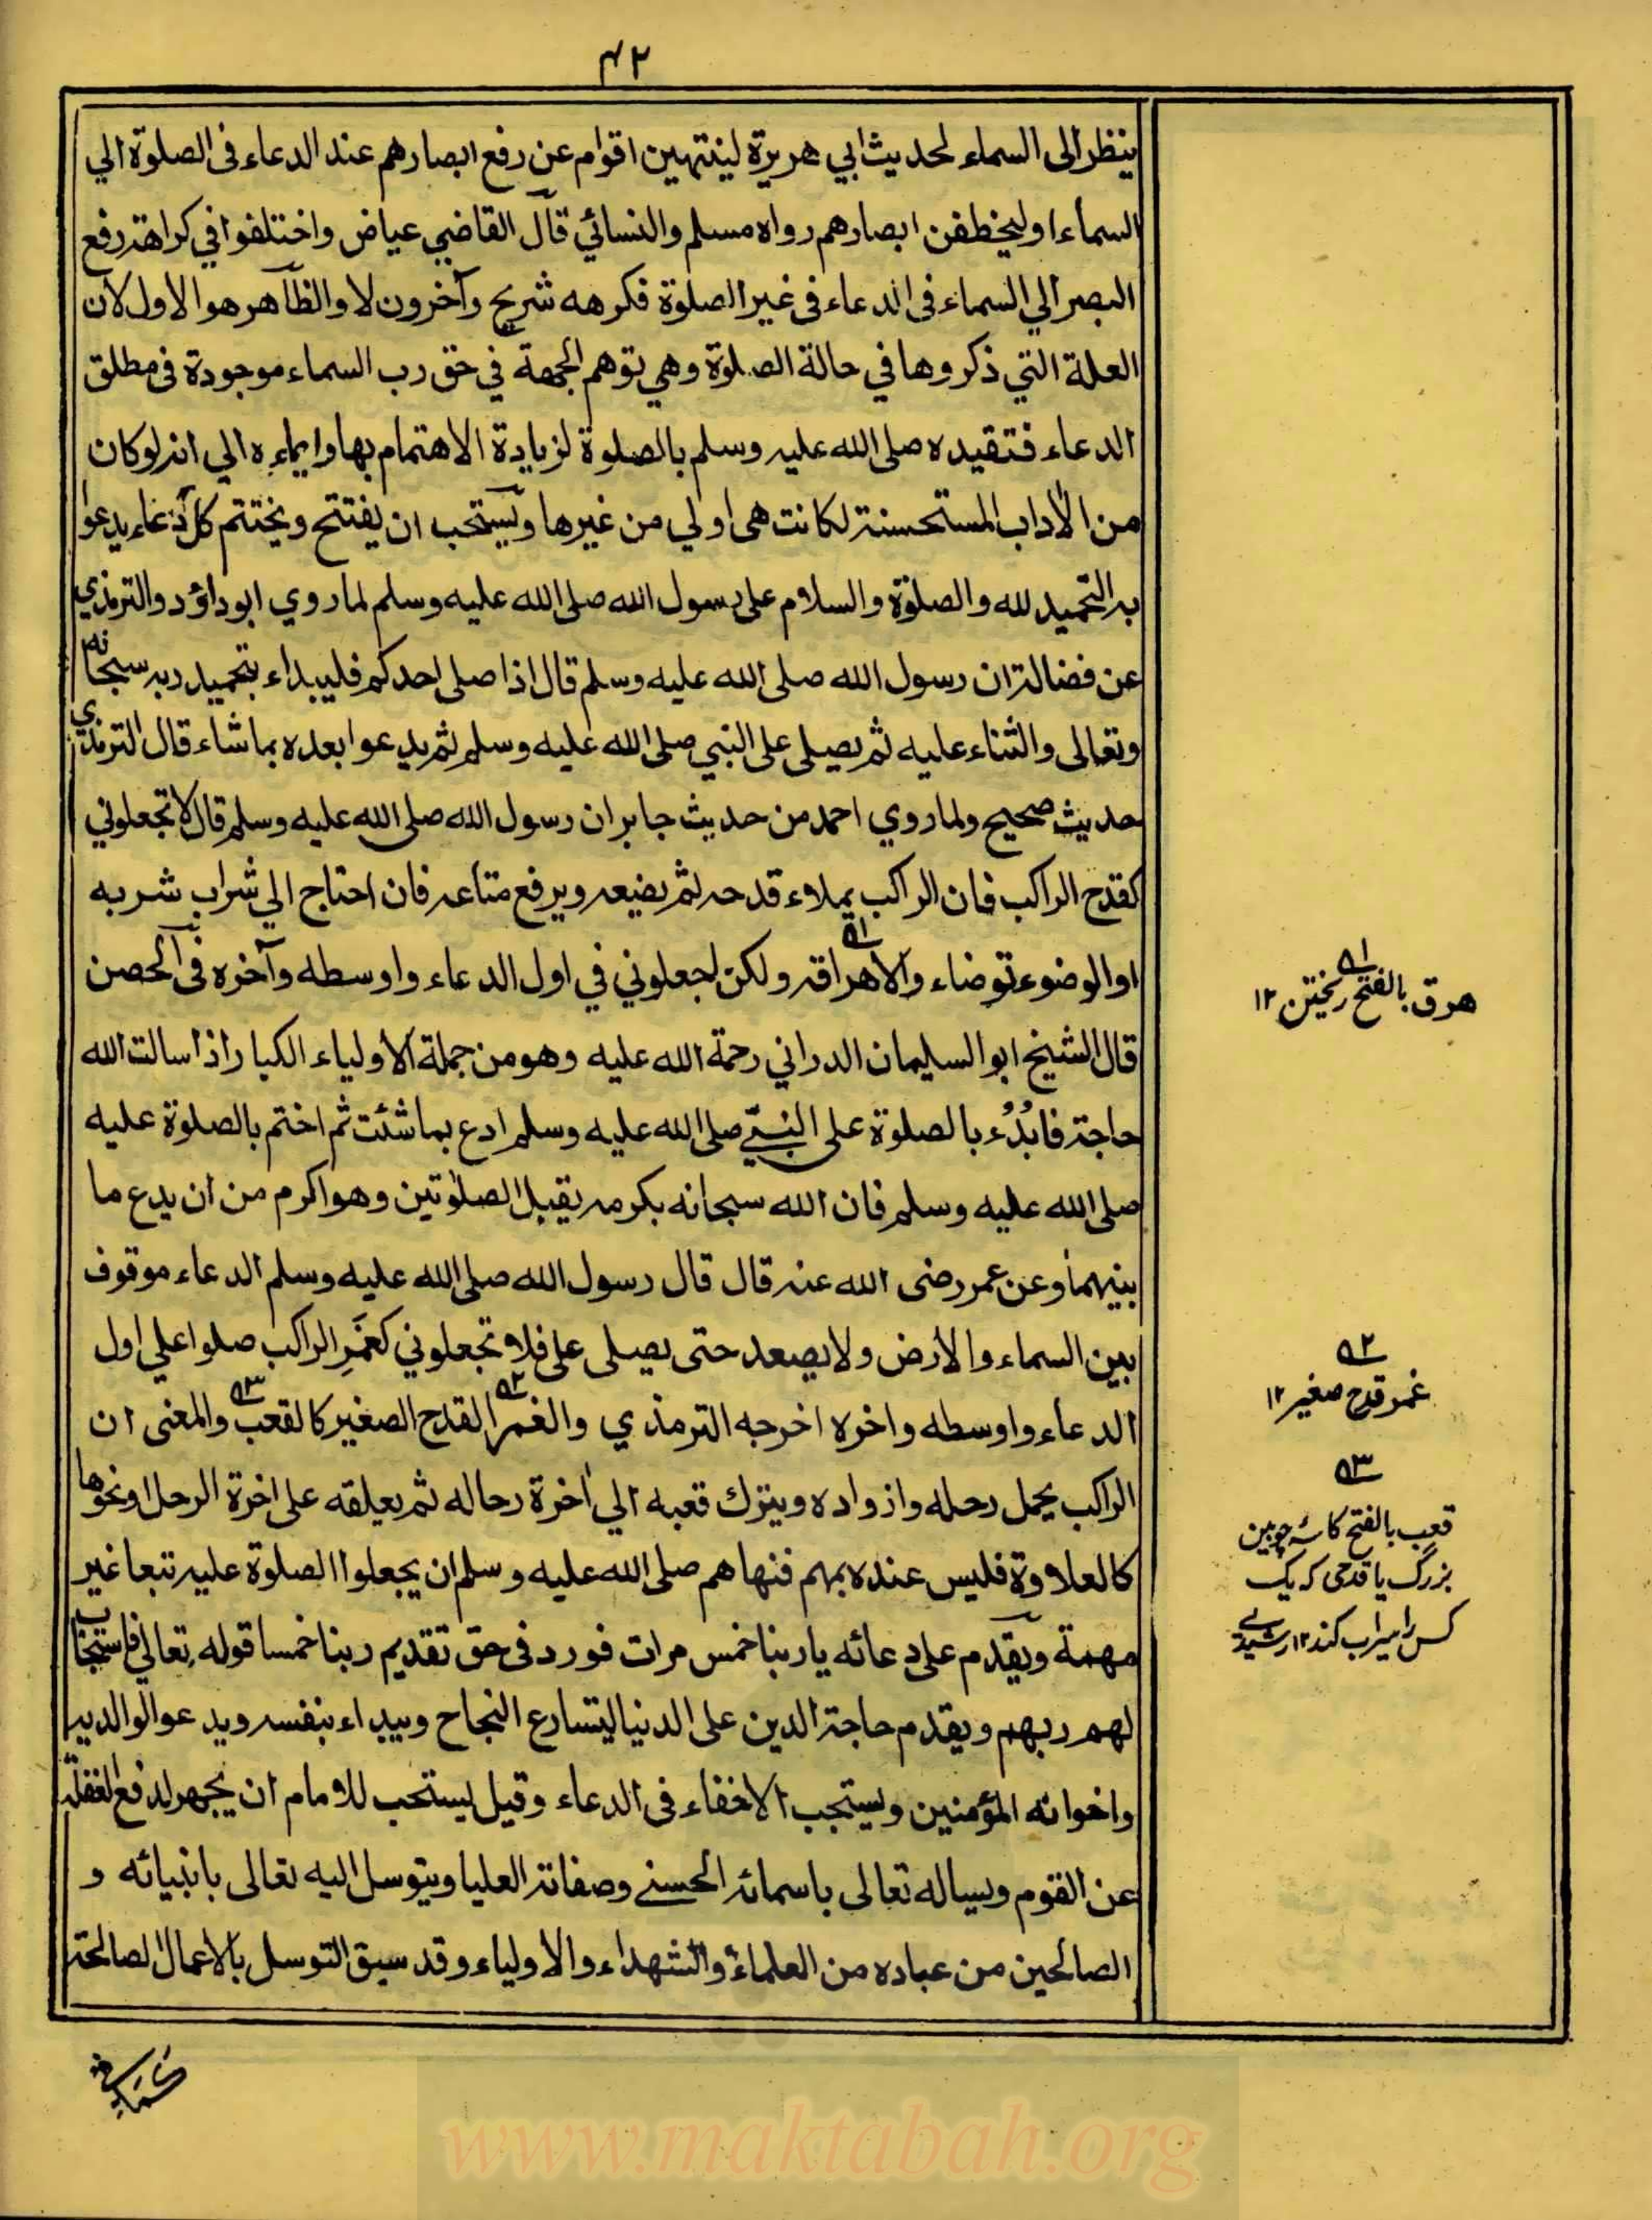 ٤٢
ينظر الى السماء لحديث ابي هريرة لينتهين اقوام عن رفع ابصارهم عند الدعاء فى الصلوة الي
السماء او ليخطفن ابصارهم رواه مسلم والنسائي قال القاضي عياض واختلفوا في كراهة رفع
البصر الي السماء فى الدعاء فى غير الصلوة فكرهه شريح وآخرون لا والظاهر هو الاول لان
العلة التي ذكروها في حالة الصلوة وهي توهم الجهة في حق رب السماء موجودة فى مطلق
الدعاء فتقيده صلى الله عليه وسلم بالصلوة لزيادة الاهتمام بها وايماءه الي انه لو كان
من الأداب المستحسنة لكانت هى اولي من غيرها ويستحب ان يفتتح ويختتم كل دعاء يدعوا
به التحميد لله والصلوة والسلام على رسول الله صلى الله عليه وسلم لما روي ابو داؤد والترمذي
عن فضالة ان رسول الله صلى الله عليه وسلم قال اذا صلى احدكم فليبداء بتحميد ربه سبحانه
وتعالى والثناء عليه ثم يصلى على النبي صلى الله عليه وسلم ثم يدعوا بعده بما شاء قال الترمذي
حديث صحيح ولما روي احمد من حديث جابر ان رسول الله صلى الله عليه وسلم قال لا تجعلوني
كقدح الراكب فان الراكب يملاء قدحه ثم يضيعه ويرفع متاعه فان احتاج الي شراب شربه
او الوضوء توضاء والا هراقه ولكن اجعلوني في اول الدعاء واوسطه وآخره فى الحصن
قال الشيخ ابو السليمان الدراني رحمة الله عليه وهو من جملة الاولياء الكبار اذا سالت الله
حاجة فابدُء بالصلوة على النبيّ صلى الله عليه وسلم ادع بما شئت ثم اختم بالصلوة عليه
صلى الله عليه وسلم فان الله سبحانه بكرمه يقبل الصلوتين وهو اكرم من ان يدع ما
بينهما وعن عمر رضى الله عنه قال قال رسول الله صلى الله عليه وسلم الدعاء موقوف
بين السماء والأرض ولا يصعد حتى يصلى على فلا تجعلوني كغمر الراكب صلوا علي اول
الدعاء واوسطه واخره اخرجه الترمذي والغمر القدح الصغير كالقعب والمعنى ان
الراكب يحمل رحله وازواده ويترك قعبه الي اخرة رحاله ثم يعلقه على اخرة الرحل او نحوها
كالعلاوة فليس عنده بمهم فنهاهم صلى الله عليه وسلم ان يجعلوا الصلوة عليه تبعا غير
مهمة ويقدم على دعائه يا ربنا خمس مرات فورد فى حق تقديم ربنا خمسا قوله تعالي فاستجاب
لهم ربهم ويقدم حاجة الدين على الدنيا ليتسارع النجاح ويبداء بنفسه ويدعو الوالديه
واخوانه المؤمنين ويستحب الاخفاء فى الدعاء وقيل يستحب للامام ان يجهر لدفع الغفلة
عن القوم ويساله تعالى باسمائه الحسنے وصفاته العليا ويتوسل اليه تعالى بانبيائه و
الصالحين من عباده من العلماء والشهداء والاولياء وقد سبق التوسل بالاعمال الصالحة
ــه١
هرق بالفتح ريختن ١٢
ــه٢
غمر قدح صغير ١٢
ــه٣
قعب بالفتح كاسۂ چوبين
بزرگ يا قدحى كه يك
كس را سيراب كند ١٢ رشيدے
www.maktabah.org